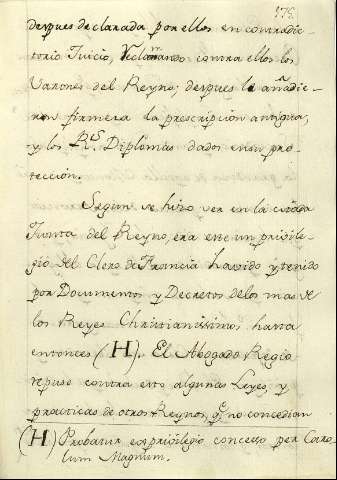 175.
despues declarada por ellos en contradic-
torio Juicio, reclamando contra ellos los
Varones del Reyno; despues le añadie-
ron firmeza la prescripcion antigua,
y los R.s Diplomas dados en su pro-
teccion.
Segun se hizo ver en la citada
Junta del Reyno, era este un privile-
gio del Clero de Francia havido y tenido
por Documentos y Decretos de los mas de
los Reyes Christianissimos hasta
entonces (H). El Abogado Regio
repuso contra esto algunas Leyes, y
practicas de otros Reynos, q.e no concedian
(H) Probatur ex privilegio concesso per Caro-
lum Magnum.